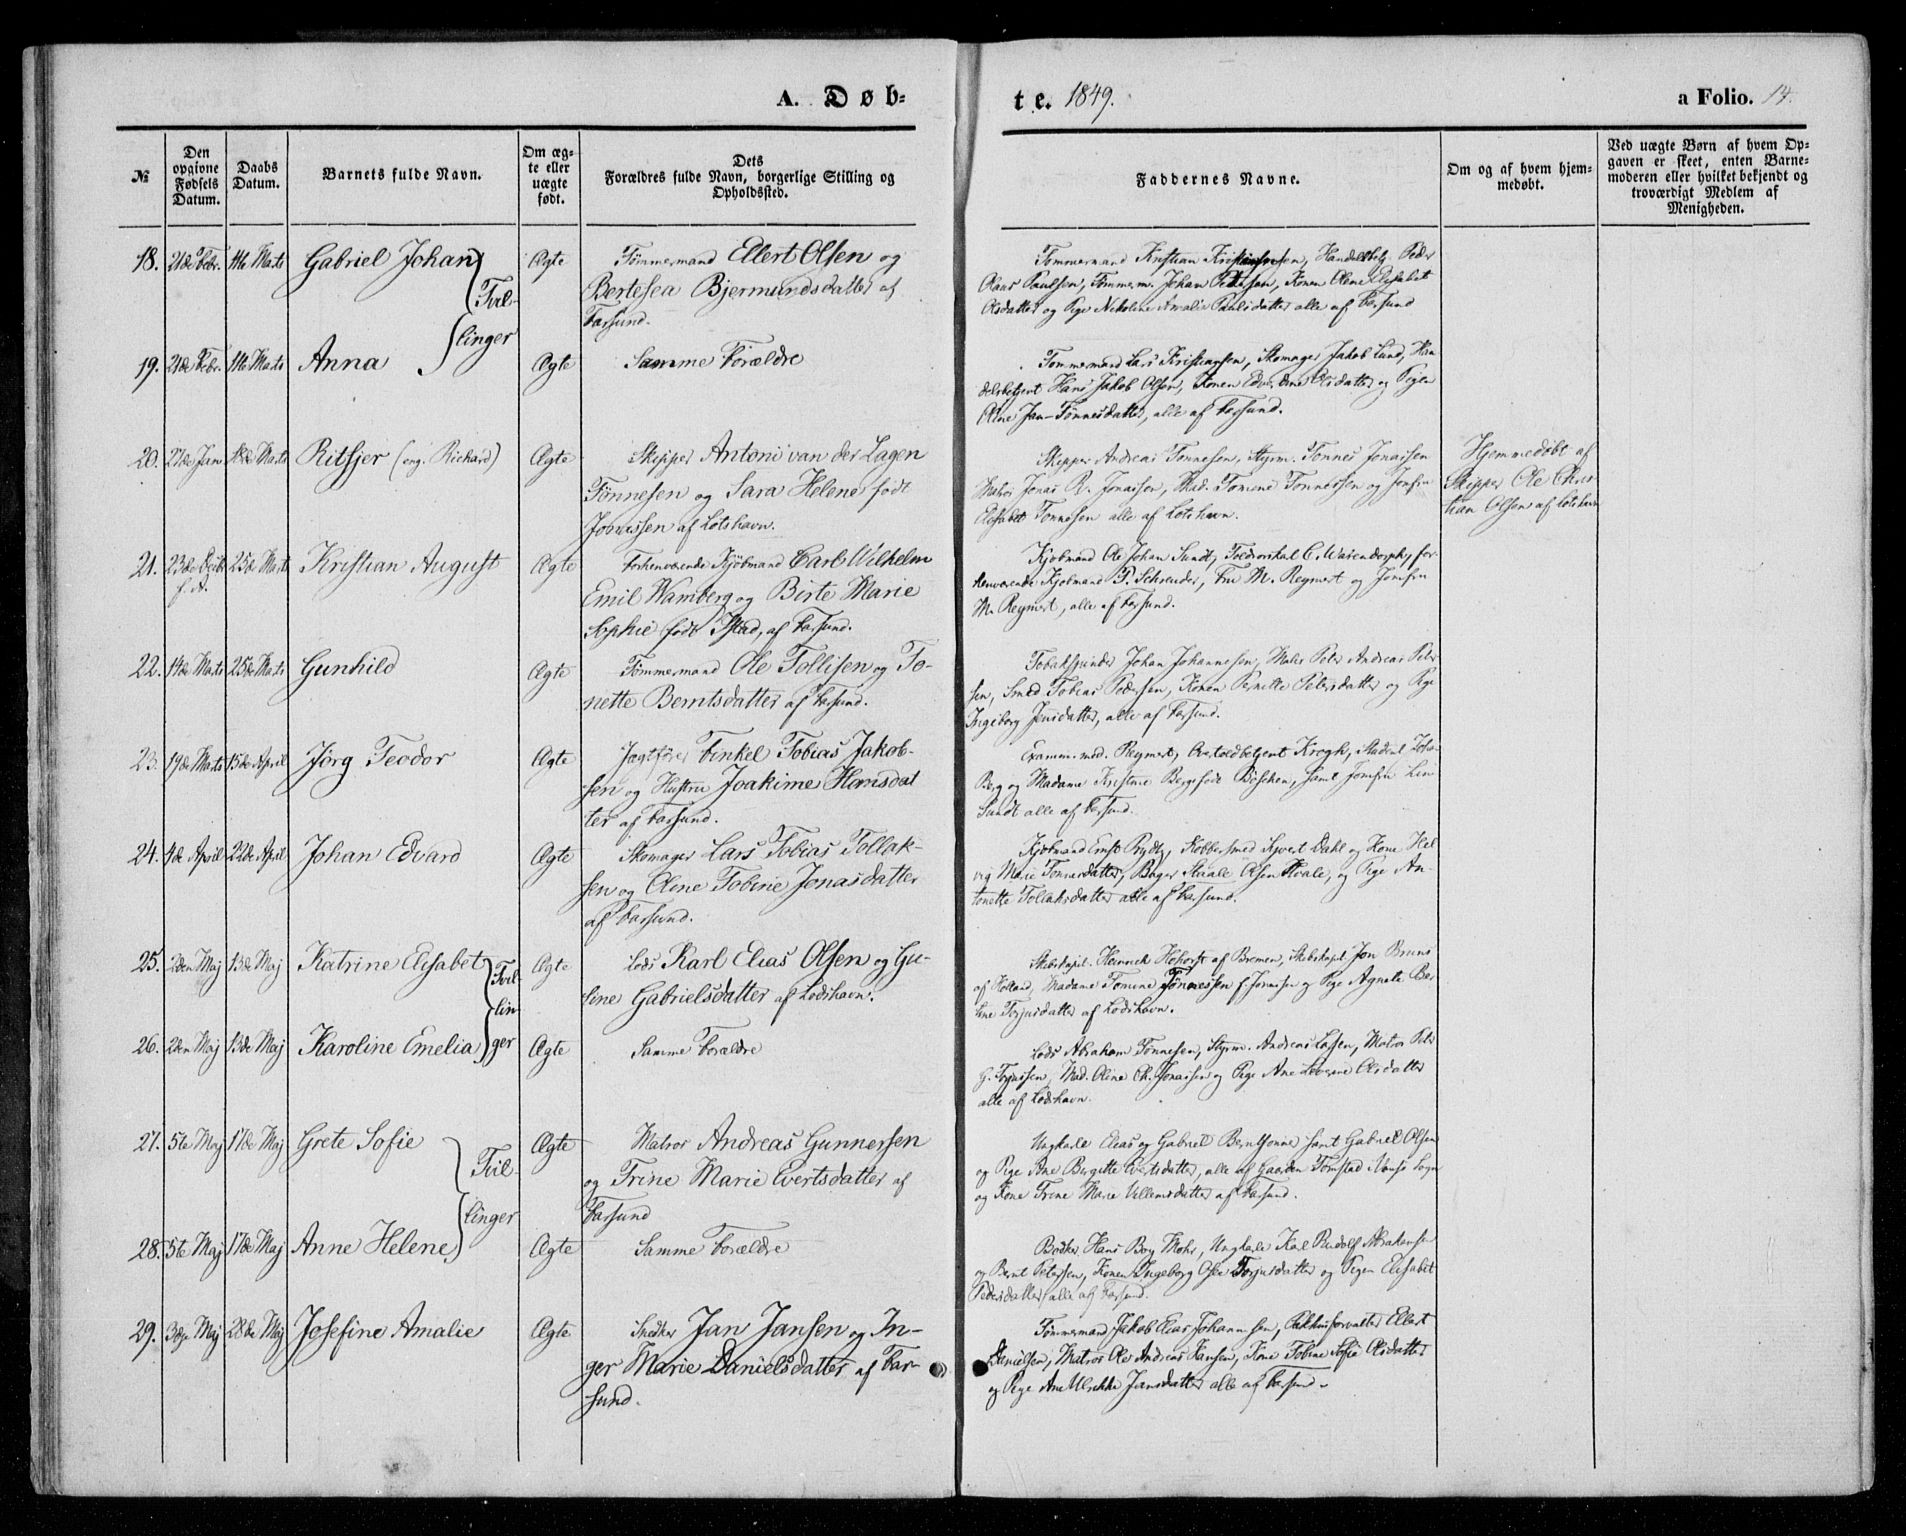 A. Døb-
te. 1849.
a Folio. 14.
№
Den opgivne Fødsels Datum.
Daabs Datum.
Barnets fulde Navn.
Om ægte eller uægte født.
Dets Forældres fulde Navn, borgerlige Stilling og Opholdssted.
Faddernes Navne.
Om og af hvem hjemmedøbt.
Ved uægte Børn af hvem Opgaven er skeet, enten Barnemoderen eller hvilket bekjendt og troværdigt Medlem af Menigheden.
18. 21de Febr. 11te Marts Gabriel Johan Ægte Tømmermand Ellert Olsen og
Bertesea Bjermundsdatter af
Farsund.
Tømmermand Kristian Kristiansen, Handelsbetj. Peder
Paulsen, Tømmerm. Johan Petersen, Konen Olene Elisabet
Olsdatter og Pige Nikoline Amalie Paulsdatter alle af Farsund
Tvil-
linger
19. 21de Febr. 11te Marts Anna Ægte Samme Forældre
Tømmermand Lars Kristiansen, Skomager Jakob Lund, Han-
delsbetjent Hans Jakob Olsen, Konen Olsdatter og Pigen
Oline Jan-Tønnesdatter, alle af Farsund.
20. 27de Jan 18de Marts Ritsjer (eng. Richard) Ægte Skipper Antoni van der Lagen
Tønnesen og Sara Helene født
Jonassen af Lotshavn.
Skipper Andreas Tønnesen, Styrm. Tønnes Jonassen
Matros Jonas R. Jonassen, Mad. Tomine Tønnessen og Jomfru
Elisabet Tønnesen alle af Lotshavn.
Hjemmedøbt af
Skipper Ole Chris-
tian Olsen af Lotshavn
21. 23de Decbr 25de Marts Kristian August Ægte Forhenværende Kjøbmand Carl Wilhelm
f. A.
Emil Wamberg og Birte Marie
Sophie født Ystad, af Farsund.
Kjøbmand Ole Johan Sundt, Toldvorskal C. Warendorph, for-
henværende Kjøbmand P. Schreuder, Fru M. Regnert og Jomfru
M. Regnert, alle af Farsund.
22. 14de Marts 25de Marts Gunhild Ægte Tømmermand Ole Tollisen og To-
nette Berntsdatter af Farsund.
Tobakspinder Johan Johannesen, Maler Peter Andreas Peter
sen, Smed Tobias Pedersen, Konen Pernille Petersdatter og Pige
Ingeborg Jensdatter, alle af Farsund.
23. 19de Marts 15de April Jörg Teodor Ægte Jagtfører Finkel Tobias Jakob-
sen og Hustru Joakime Hansdat
ter af Farsund.
Examin. med. Regnert, Toldbetjent Krogh, Student Joh.
Berg og Madame Kristine Berg født Böschen, samt Jomfru
Sundt alle af Farsund.
24. 4de April 22de April Johan Edvard Ægte Skomager Lars Tobias Tollak-
sen og Oline Tobine Jonasdatter
af Farsund.
Kjøbmand Ernst Rydby, Kobbersmed Sjvert Dahl og Kone Hel
vig Marie Tønnesdatter, Bager Staale Olsen Kvale, og Pige An-
tonette Tollaksdatter alle af Farsund.
25. 2den Maj 13de Maj Katrine Elisabet Ægte Lods Karl Elias Olsen og Gu-
sine Gabrielsdatter af Lodshavn.
Skibskapt. Heinrich Hohorst af Bremen, Skibskapt Jon Bruns
af Holland, Madame Tomine Tønnessen f. Jonassen og Pige Agnete Be-
line Torjusdatter af Lodshavn.
Tvil-
lin-
ger
26. 2den Maj 13de Maj Karoline Emelia Ægte Samme Forældre
Lods Abraham Tønnesen, Styrm. Andreas Lassen, Matros Peter
G. Torjussen, Mad. Oline Ch. Jonassen og Pige Ane Severine Olsdatter
alle af Lodshavn.
27. 5te Maj 17de Maj Grete Sofie Ægte Matros Andreas Gunnersen
og Trine Marie Evertsdatter af
Farsund
Ungkarle Elias og Gabriel Berntsønner samt Gabriel Olsen
og Pige Ane Bergitte Evertsdatter, alle af Gaarden Tomstad i Vansø Sogn
og Kone Trine Marie Villemsdatter af Farsund.
Tvil-
linger
28. 5te Maj 17de Maj Anne Helene Ægte Samme Forældre
Bødker Hans Boy Mohr, Ungkarle Karl Rudolf Abrahamsen
og Bernt Petersen, Konen Ingeborg Torjusdatter og Pigen Elisabet
Pedersdatter, alle af Farsund.
29. 3die Maj 28de Maj Josefine Amalie Ægte Snedker Jan Jansen og In-
ger Marie Danielsdatter af Far-
sund.
Tømmermand Jakob Elias Johannsen, Pakhusforvalter Ellert
Danielsen, Matros Ole Andreas Jansen, Kone Tobine Sofie Olsdatter
og Pige Ane Ulrikke Jansdatter alle af Farsund.